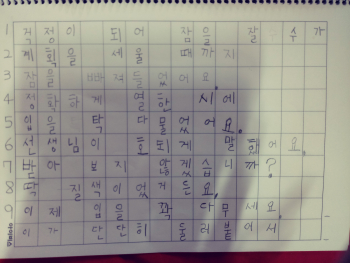 1 걱정이 되어 잠을 잘 수가
2 계획을 세울 때까지
3 잠을 빠져들었어요.
4 정확하게 열한 시에
5 입을 딱 다물었어요.
6 선생님이 호되게 말 어요.
7 받아 보지 않겠습니까?
8 딱 질색이었거든요.
9 이제 입을 꽉 다무세요.
이가 단단히 들러붙어서